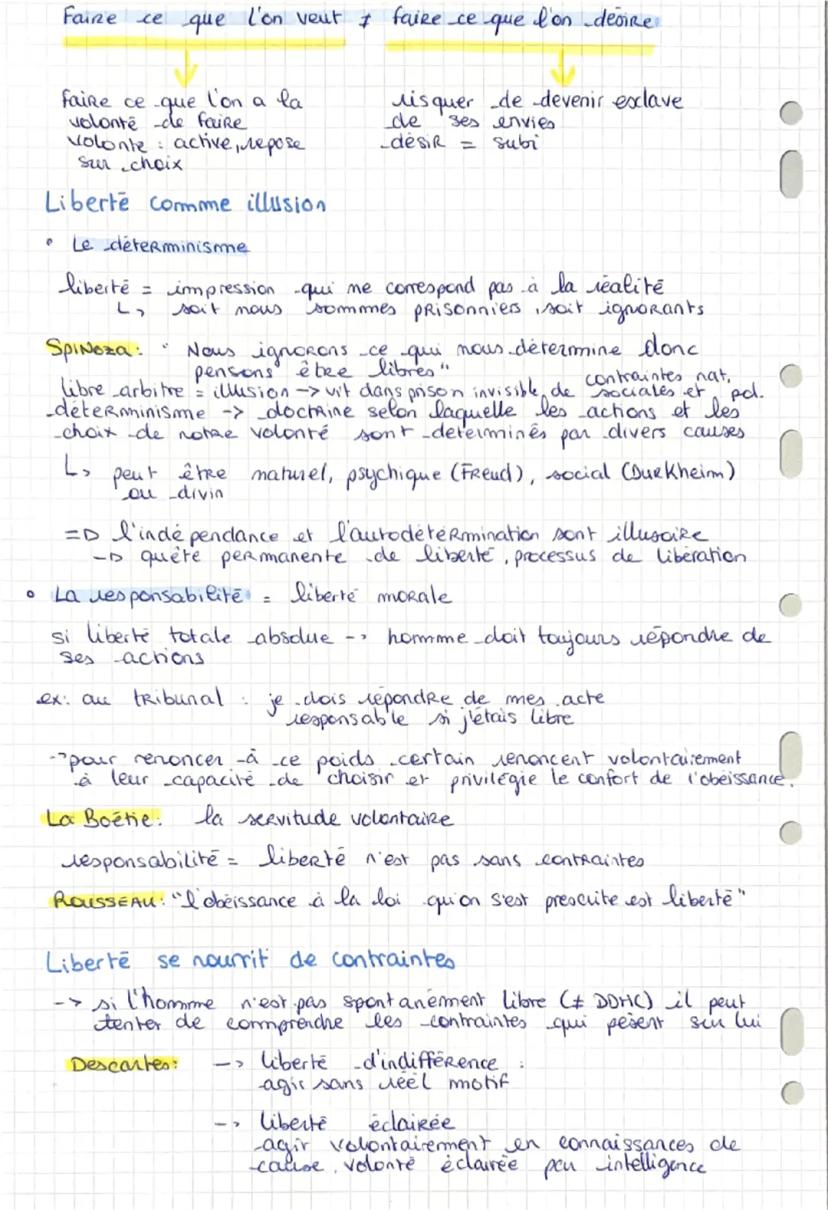 Faire ce que l'on veut ≠ faire ce que l'on désire
faire ce que l'on a la
volonté de faire
volonté : active, repose
sur choix
risquer de devenir esclave
de ses envies
désir = subi
Liberté comme illusion
• Le déterminisme
liberté = impression qui ne correspond pas à la réalité
↳ soit nous sommes prisonniers, soit ignorants
Spinoza : "Nous ignorons ce qui nous détermine donc
pensons être libres"
libre arbitre = illusion -> vit dans prison invisible de contraintes nat. sociales et pol.
déterminisme -> doctrine selon laquelle les actions et les
choix de notre volonté sont determinés par divers causes
↳ peut être naturel, psychique (Freud), social (Durkheim)
ou divin
=> l'indépendance et l'autodétermination sont illusoire
-> quête permanente de liberté, processus de libération
• La responsabilité = liberté morale
si liberté totale absolue -> homme doit toujours répondre de
ses actions
ex: au tribunal : je dois répondre de mes acte
responsable si j'étais libre
-> pour renoncer à ce poids certain renoncent volontairement
à leur capacité de choisir et privilégie le confort de l'obéissance.
La Boétie : la servitude volontaire
responsabilité = liberté n'est pas sans contraintes
ROUSSEAU : "l'obéissance à la loi qu'on s'est prescrite est liberté"
Liberté se nourrit de contraintes
-> si l'homme n'est pas spontanément libre (≠ DDHC) il peut
tenter de comprendre les contraintes qui pèsent sur lui
Descartes : -> liberté d'indifférence :
agir sans réel motif
-> liberté éclairée
agir volontairement en connaissances de
cause, volonté éclairée par intelligence